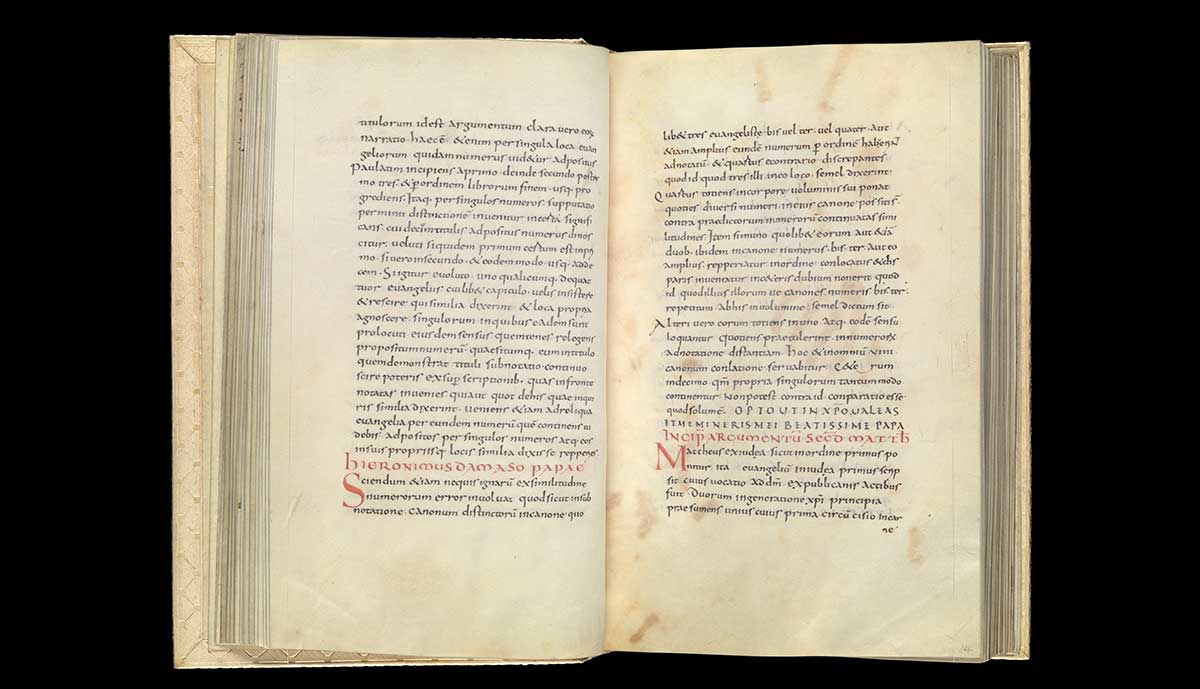 titulorum idest argumentum clara vero eor
narratio. haec ē. &enim per singula loca euan
geliorum quidam numerus uid&ur adpositus
Paulatim incipiens aprimo. deinde secundo poster
mo tres. & p ordinem librorum finem. usq; pro
grediens. Itaq; per singulos numeros. supputatio
per minii distinctionē inuenitur incesta signifi
cans. cui decim titulis adpositus numerus dinos
citur. ueluti siquidem primum cestum est inpri
mo. si uero insecundo. & eodem modo. usq; adde
cem. Si igitur euoluto. uno qualicumq; de quat
tuor euangeliis cuilib& capitulo. uelis insistere
& rescire qui similia dixerint. & loca propria
agnoscere. singulorum. inquibus eadem sunt
prolocuti. eiusdem sensus quem tenes relegens
propositum numerū. quaesitumq; eum in titulo
quem demonstrat tituli subnotatio. continuo
scire poteris ex sup scriptionib. quas in fronte
notatas inuenies qui aut quot de his quae inqui
ris similia dixerint. ueniens &iam ad reliqua
euangelia per eundem numerū quē continens ui
debis. adpositos per singulos numeros atq; eos
in suis propriisq; locis similia dixisse repperies
hIERONIMUS DAMASO PAPAE
Sciendum &iam ne quis ignarū ex similitudine
numerorum error inuoluat. quod sicut in sub
notatione. canonum distinctorū in canone. quo
lib& tres euangelistae. bis uel ter. uel quater. aut
&iam amplius eundē numerum p ordinē habent
adnotatū. & quastus econtrario discrepantes.
quod id quod tres illi. in eo loco. semel dixerint.
Quastus totiens in corpore uoluminis sui ponat
quoties diuersi numeri. in eius canone positi sint
contra praedictorum numerorū continuatas simi
litudines. Item si in uno quolib& eorum. aut &iā
duob; ibidem in canone numerus. bis. ter. aut eo
amplius. repperiatur in ordine. conlocatus & dis
paris inueniatur in c&eris dubium non erit quod
id quod illius illorum ue canones numeris bis. ter.
repetitum. ab his in uolumine. semel dictum sit.
Alteri uero eorum totiens in uno atq; eodē sensu
loquantur. Quotiens praetulerint. in numerosa
adnotatione distantiam. hoc & in omniū uiiii
canonum conlatione seruabitur. C&erum
in decimo. qm propria singulorum tantummodo
continentur. Non potest contra id. conparatio esse
quod solum ē. OPTO UT IN XPO UALEAS
ET MEMINERIS MEI BEATISSIME PAPA
INCIP ARGUMENTŪ SECD MATTH
Mattheus ex iudea sicut in ordine primus po
nitur. ita euangeliū in iudea primus scrip
sit. cuius uocatio ad dm. ex publicanis actibus
fuit. Duorum in generatione xpi principia
praesumens unius cuius prima circū cisio in car
ne